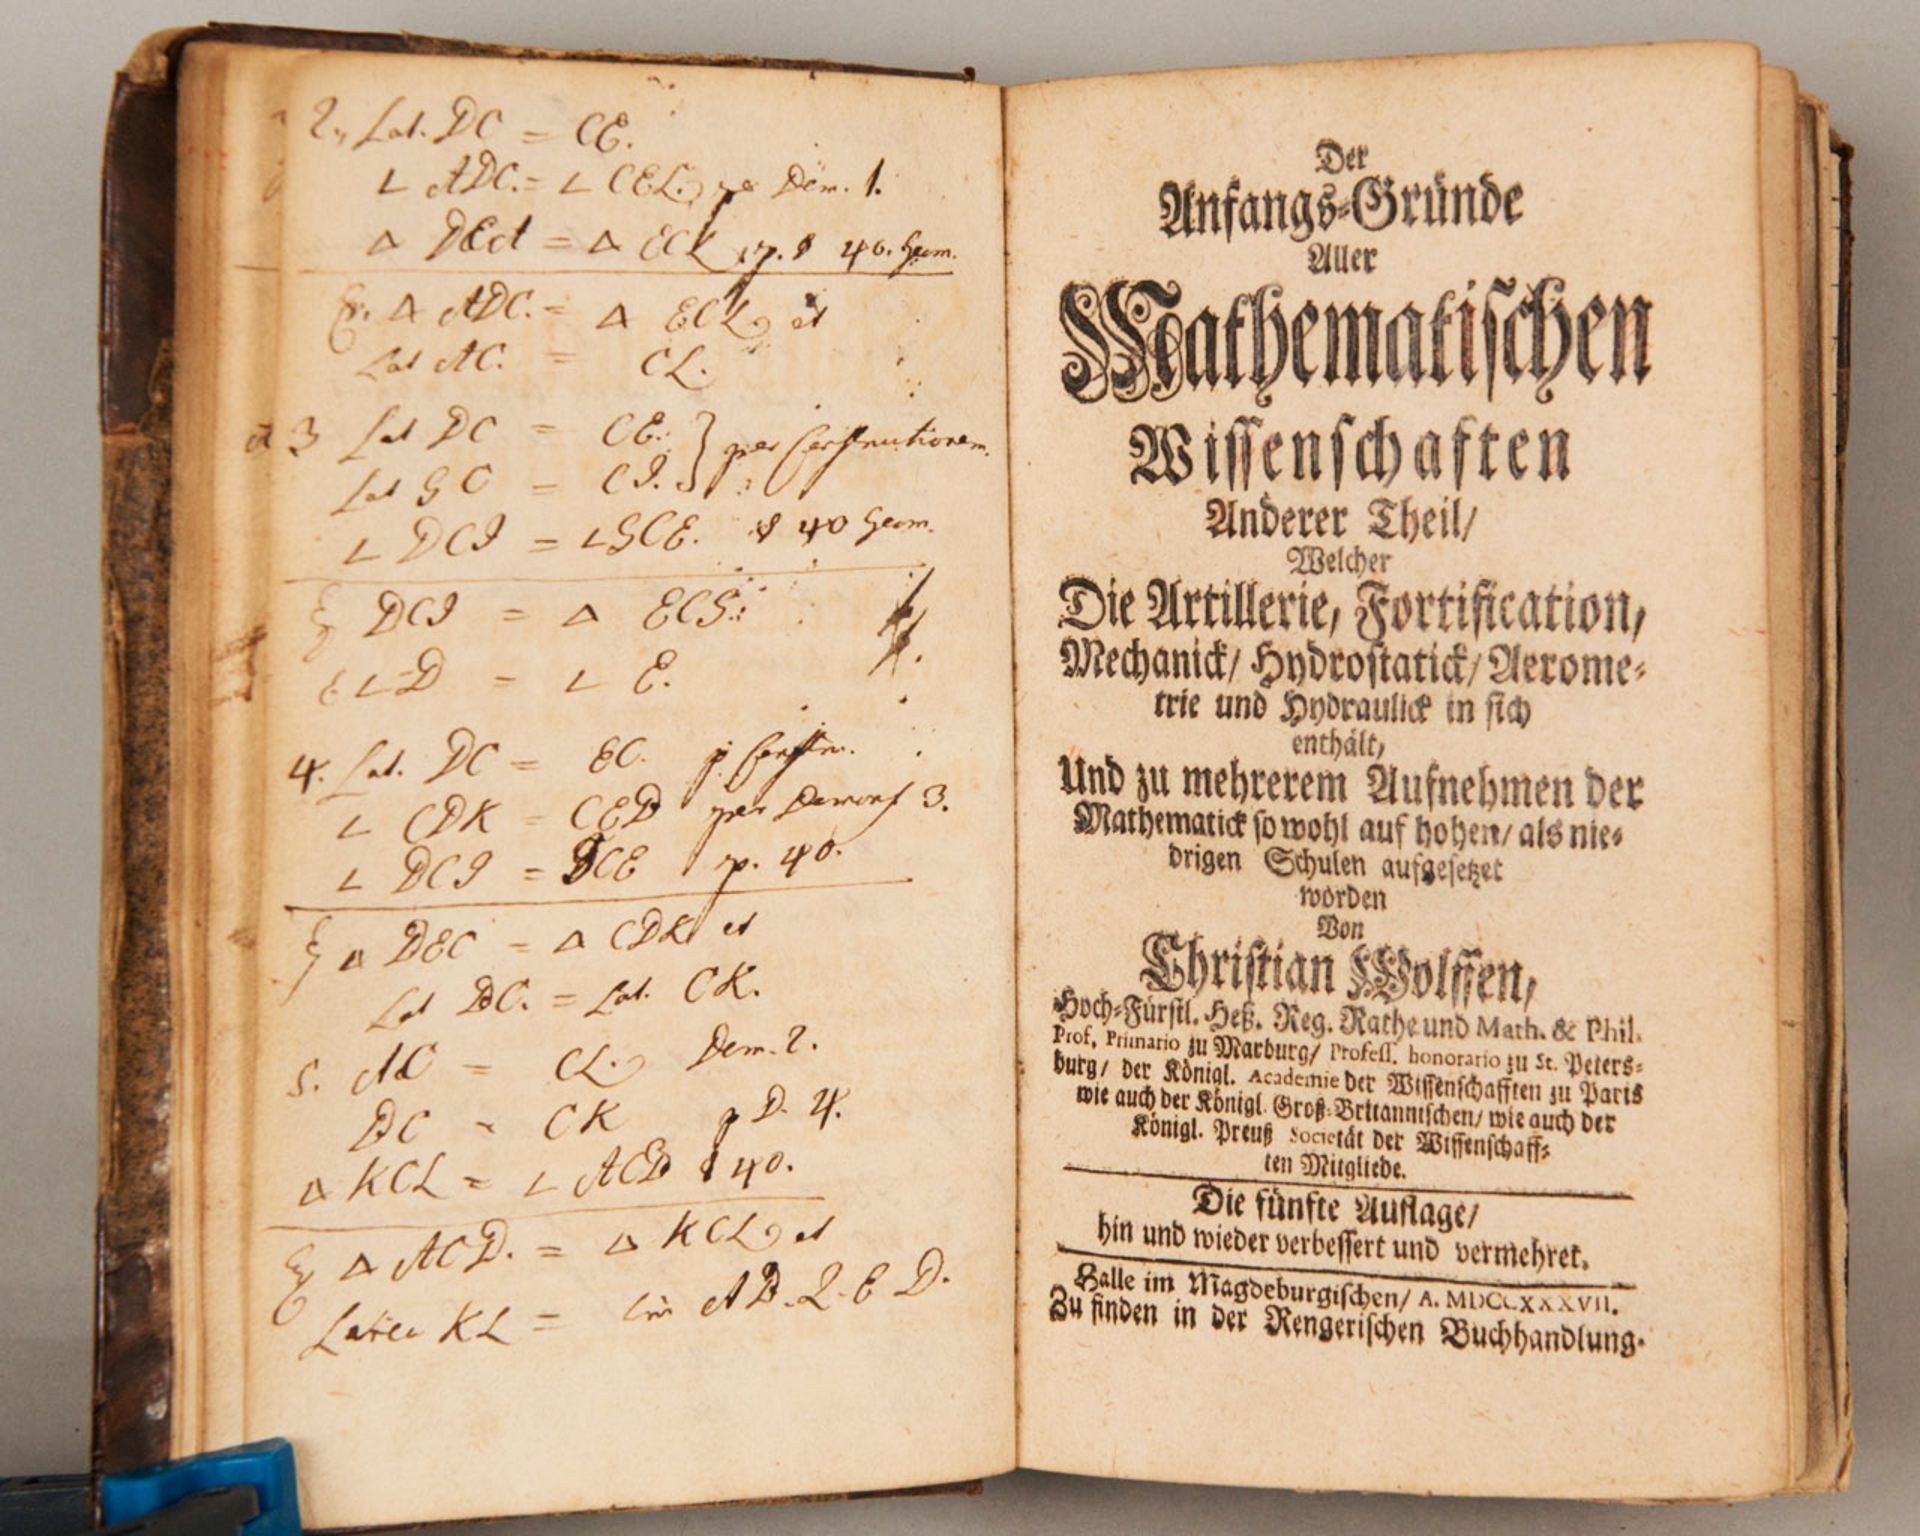 2., Lat. DC = CE.
∟ ADC. = ∟ CEL. per Dem. 1.
△ DEA = △ ECK p. § 40. Geom.
△ ADC. = △ ECL, et
Lat AC. = CL.
3 Lat DC = CE. } per
Lat GC = CI.
∟ DCI = ∟ GCE. § 40 Geom.
DCI = △ ECG.
∟ D = ∟ E.
4. Lat. DC = EC. p
∟ CDK = CED per Demonst 3.
∟ DCI = GCE p. 40.
△ DEC = △ CDK et
Lat DC. = Lat. CK.
5. AC = CL. Dem. 2.
DC = CK p D. 4.
△ KCL = ∟ ACD § 40.
△ ACD. = △ KCL, et
KL = AD. Q. E D.
Der
Anfangs-Gründe
Aller
Mathematischen
Wissenschaften
Anderer Theil/
Welcher
Die Artillerie, Fortification,
Mechanick/ Hydrostatick/ Aerome-
trie und Hydraulick in sich
enthält,
Und zu mehrerem Aufnehmen der
Mathematick so wohl auf hohen/ als nie-
drigen Schulen aufgesetzet
worden
Von
Christian Wolffen,
Hoch-Fürstl. Heß. Reg. Rathe und Math. & Phil.
Prof. Primario zu Marburg/ Profess. honorario zu St. Peters-
burg/ der Königl. Academie der Wissenschafften zu Paris
wie auch der Königl. Groß-Britannischen/ wie auch der
Königl. Preuß Societät der Wissenschaff-
ten Mitgliede.
Die fünfte Auflage/
hin und wieder verbessert und vermehret.
Halle im Magdeburgischen/ A. MDCCXXXVII.
Zu finden in der Rengerischen Buchhandlung.